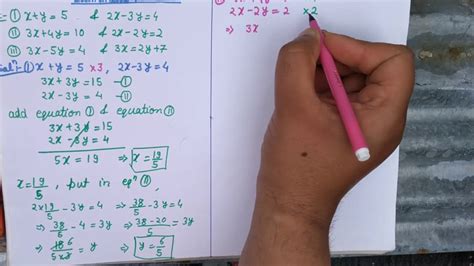 ① x+y=5 & 2x-3y=4
Ⅱ 3x+4y=10 & 2x-2y=2
Ⅲ 3x-5y=4 & 3x=2y+7
x+y=5 ×3, 2x-3y=4
3x+3y=15 -①
2x-3y=4 -Ⅱ
add equation ① & equation Ⅱ
3x+3y=15
2x-3y=4
5x=19 ⇒ x=19/5
x=19/5, put in eqⁿ Ⅱ
2×19/5-3y=4 ⇒ 38/5-3y=4
⇒ 38/5-4=3y ⇒ 38-20/5=3y
⇒ 18 6/5×3=y ⇒ y=6/5
2x-2y=2 ×2
⇒ 3x